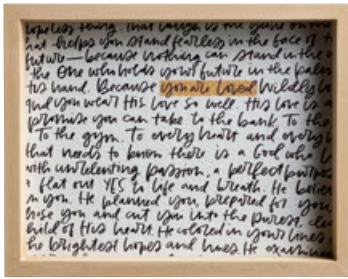 hopeless thing. That laugh is
that helps you stand fearless in the face of
future—because nothing can stand in the
the One who holds your future in the palm
his hand. Because you are loved. Wildly
and you wear His love so well. His love is
promise you can take to the bank. To the
To the gym. To every heart and every
that needs to know there is a God who
with unrelenting passion, a perfect purpose
a flat out YES to life and breath. He
in you. He planned you, prepared for you
chose you and cut you into the purest
held of His heart. He colored in your lines
the brightest hopes and hues. He